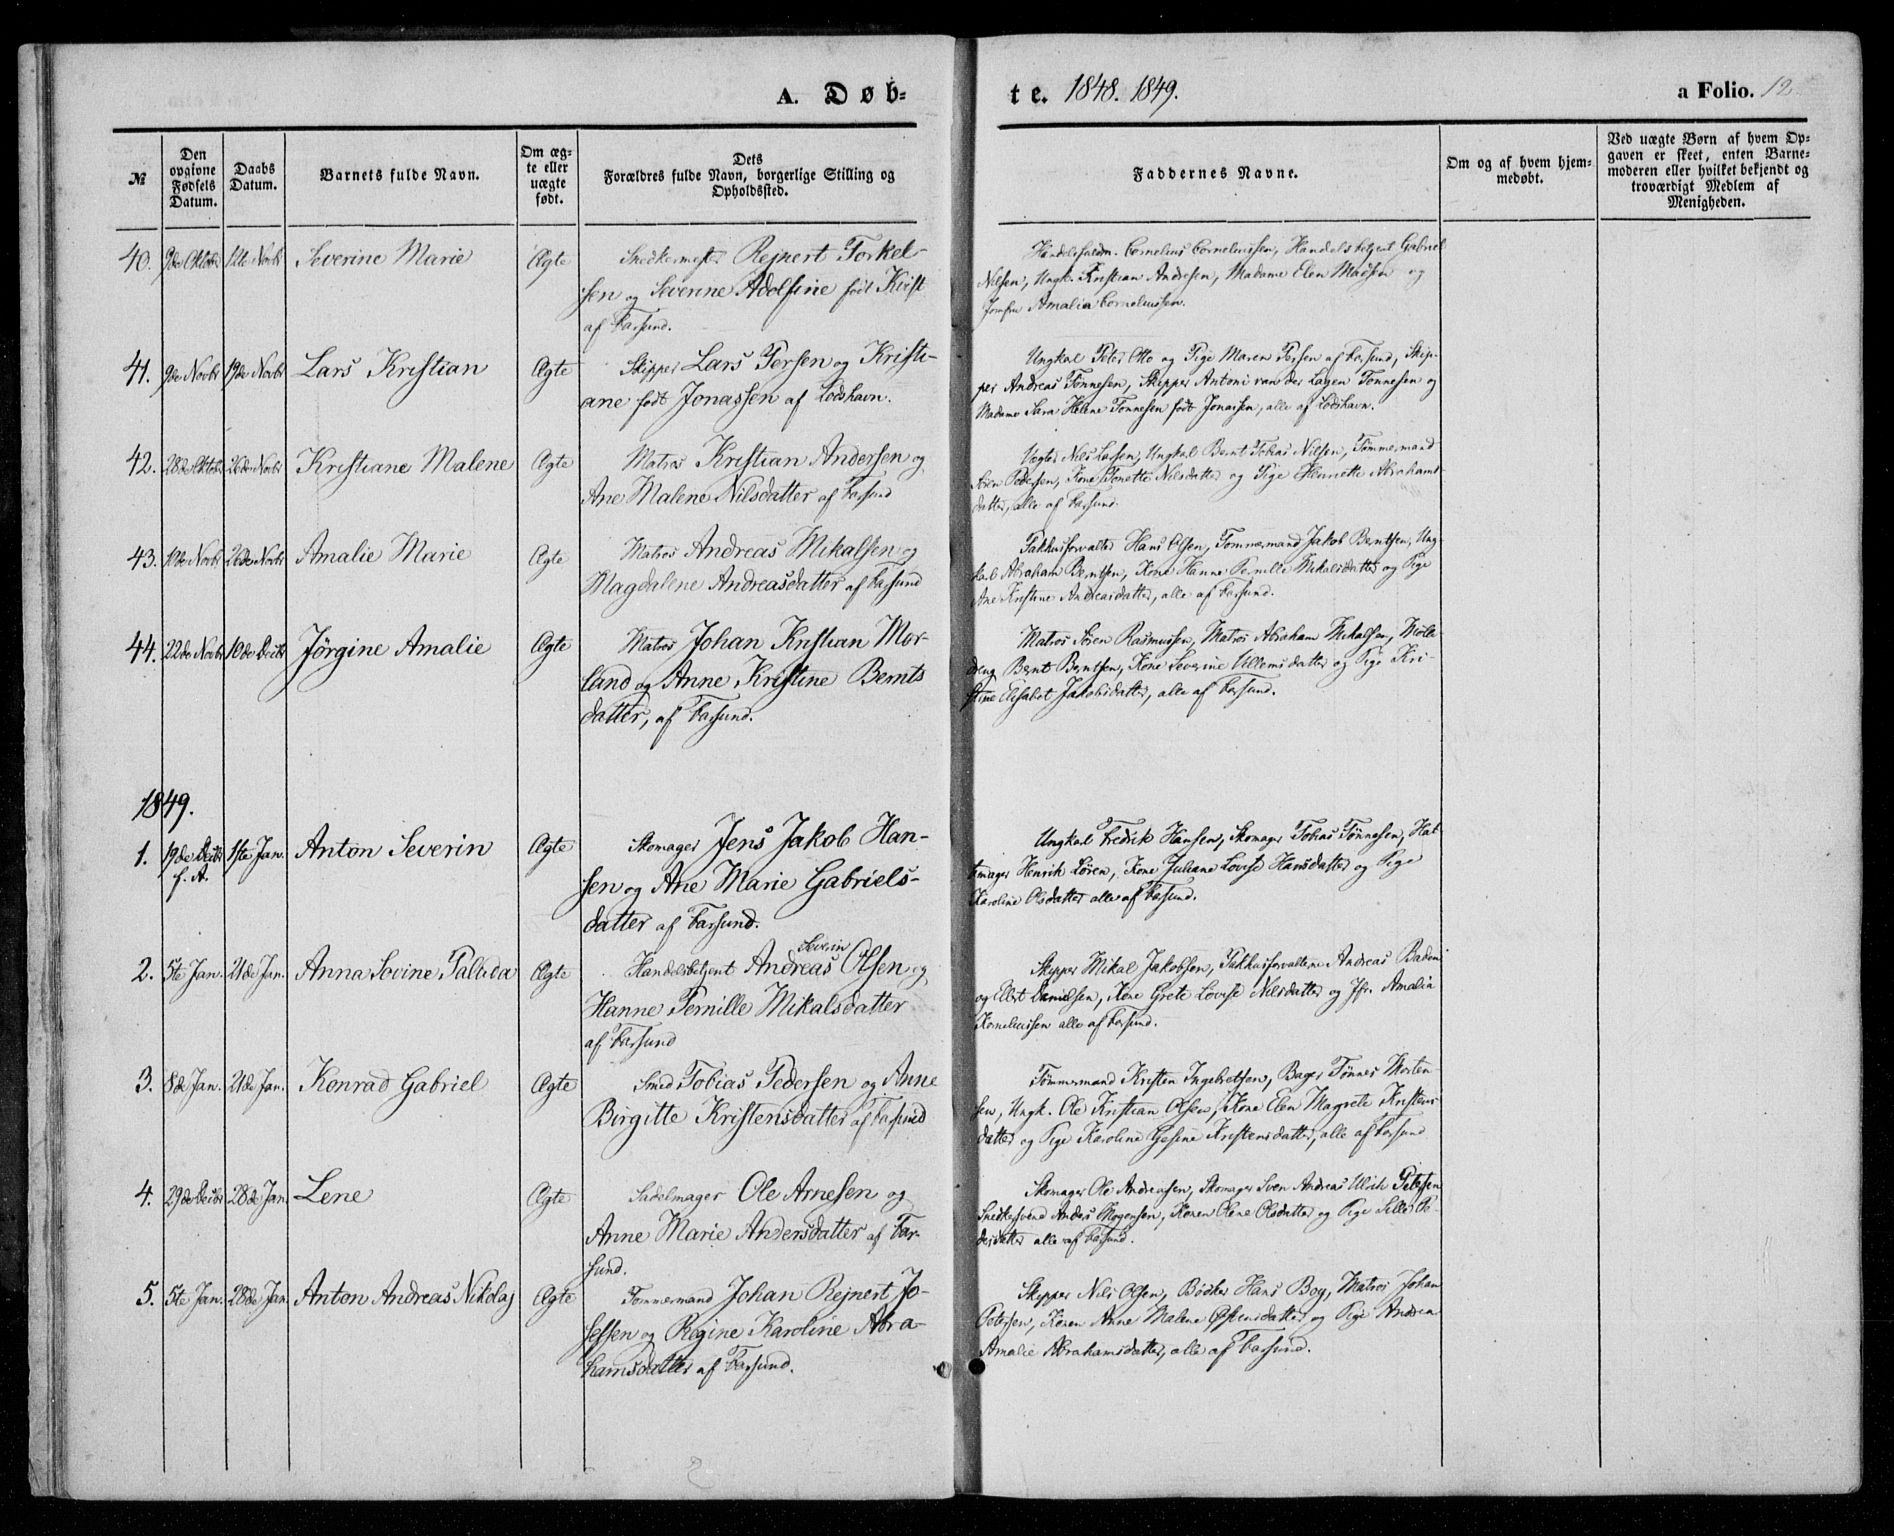 A. Døb-
te. 1848. 1849.
a Folio. 12
№
Den opgivne Fødsels Datum.
Daabs Datum.
Barnets fulde Navn.
Om ægte eller uægte født.
Dets Forældres fulde Navn, borgerlige Stilling og Opholdssted.
Faddernes Navne.
Om og af hvem hjemmedøbt.
Ved uægte Børn af hvem Opgaven er skeet, enten Barnemoderen eller hvilket bekjendt og troværdigt Medlem af Menigheden.
40. 9de Oktober 12te Novbr Severine Marie Ægte Snedkermester Rejnert Torkel-
sen og Severine Adolfine født Kvist
af Farsund.
Handelsfuldm. Cornelius Corneliussen, Handelsbetjent Gabriel
Nilsen, Ungk. Kristian Andresen, Madame Elen Madsen og
Jomfru Amalia Corneliussen.
41. 9de Novbr 19de Novbr Lars Kristian Ægte Skipper Lars Persen og Kristi-
ane født Jonassen af Lodshavn.
Ungkal Peter Otto og Pige Maren Persen af Farsund, Skip-
per Andreas Tønnesen, Skipper Antoni van der Lagen Tonnesen og
Madame Sara Helene Tonnesen født Jonassen, alle af Lodshavn.
42. 28de Oktbr 26de Novbr Kristiane Malene Ægte Matros Kristian Andersen og
Ane Malene Nilsdatter af Farsund
Vegter Nils Larsen, Ungkal Bernt Tobias Nilsen, Tømmermand
Sören Pedersen, Kone Tonette Nilsdatter og Pige Henriette Abrahams
datter, alle af Farsund.
43. 10de Novbr 26de Novbr Amalie Marie Ægte Matros Andreas Mikalsen og
Magdalene Andreasdatter af Farsund
Pakhusforvalter Hans Olsen, Tommermand Jakob Berntsen, Ung-
karl Abraham Berntsen, Kone Hanne Pernille Mikalsdatter og Pige
Ane Kristine Andreasdatter, alle af Farsund.
44. 22de Novbr 10de Decbr Jörgine Amalie Ægte Matros Johan Kristian Mor-
land og Anne Kristine Bernts
datter, af Farsund.
Matros Sören Rasmussen, Matros Abraham Mikalsen,
Bernt Berntsen, Kone Severine Villumsdatter og Pige Kri-
stine Elisabet Jakobsdatter, alle af Farsund.
1849.
1. 19de Decbr f. A. 1ste Jan. Anton Severin Ægte Skomager Jens Jakob Han-
sen og Ane Marie Gabriels-
datter af Farsund.
Ungkal Fredrik Hansen, Skomager Tobias Tönnesen, Hat-
temager Henrik Lören, Kone Juliane Lovise Hansdatter og Pige
Karoline Olsdatter alle af Farsund.
2. 5te Jan. 21de Jan. Anna Sovine Palluda Ægte Handelsbetjent Andreas Severin Olsen og
Hanne Pernille Mikalsdatter
af Farsund
Skipper Mikal Jakobsen, Pakhusforvalterne Andreas Baden
og Ellert Danielsen, Kone Grete Lovise Nilsdatter og Jfr. Amalia
Korneliussen alle af Farsund.
3. 8de Jan. 21de Jan. Konrad Gabriel Ægte Smed Tobias Pedersen og Anne
Birgitte Kristensdatter af Farsund
Tömmermand Kristen Ingebretsen, Bager Tönnes Morten
sen, Ungk. Ole Kristian Olsen, Kone Elen Magrete Kristens
datter og Pige Karoline Gesine Kristensdatter, alle af Farsund
4. 29de Decbr 28de Jan. Lene Ægte Sadelmager Ole Arnesen og
Anne Marie Andersdatter af Far-
sund.
Skomager Ole Andreassen, Skomager Sven Andreas Ulrik Petersen
Snedkersvend Anders Mogensen, Konen Olene Olsdatter og Pige Sille Pe-
dersdatter alle af Farsund.
5. 5te Jan. 28de Jan. Anton Andreas Nikolaj Ægte Tommermand Johan Rejnert Jo-
sefsen og Regine Karoline Abra-
hamsdatter af Farsund.
Skipper Nils Olsen, Bödker Hans Bog, Matros Johan
Petersen, Konen Anne Malene Østensdatter og Pige Andrea
Amalie Abrahamsdatter, alle af Farsund.